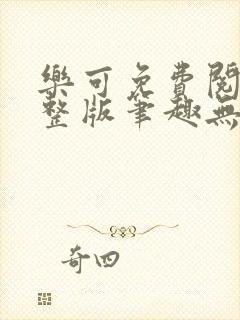 樂可免費閱
整版筆趣無
奇四